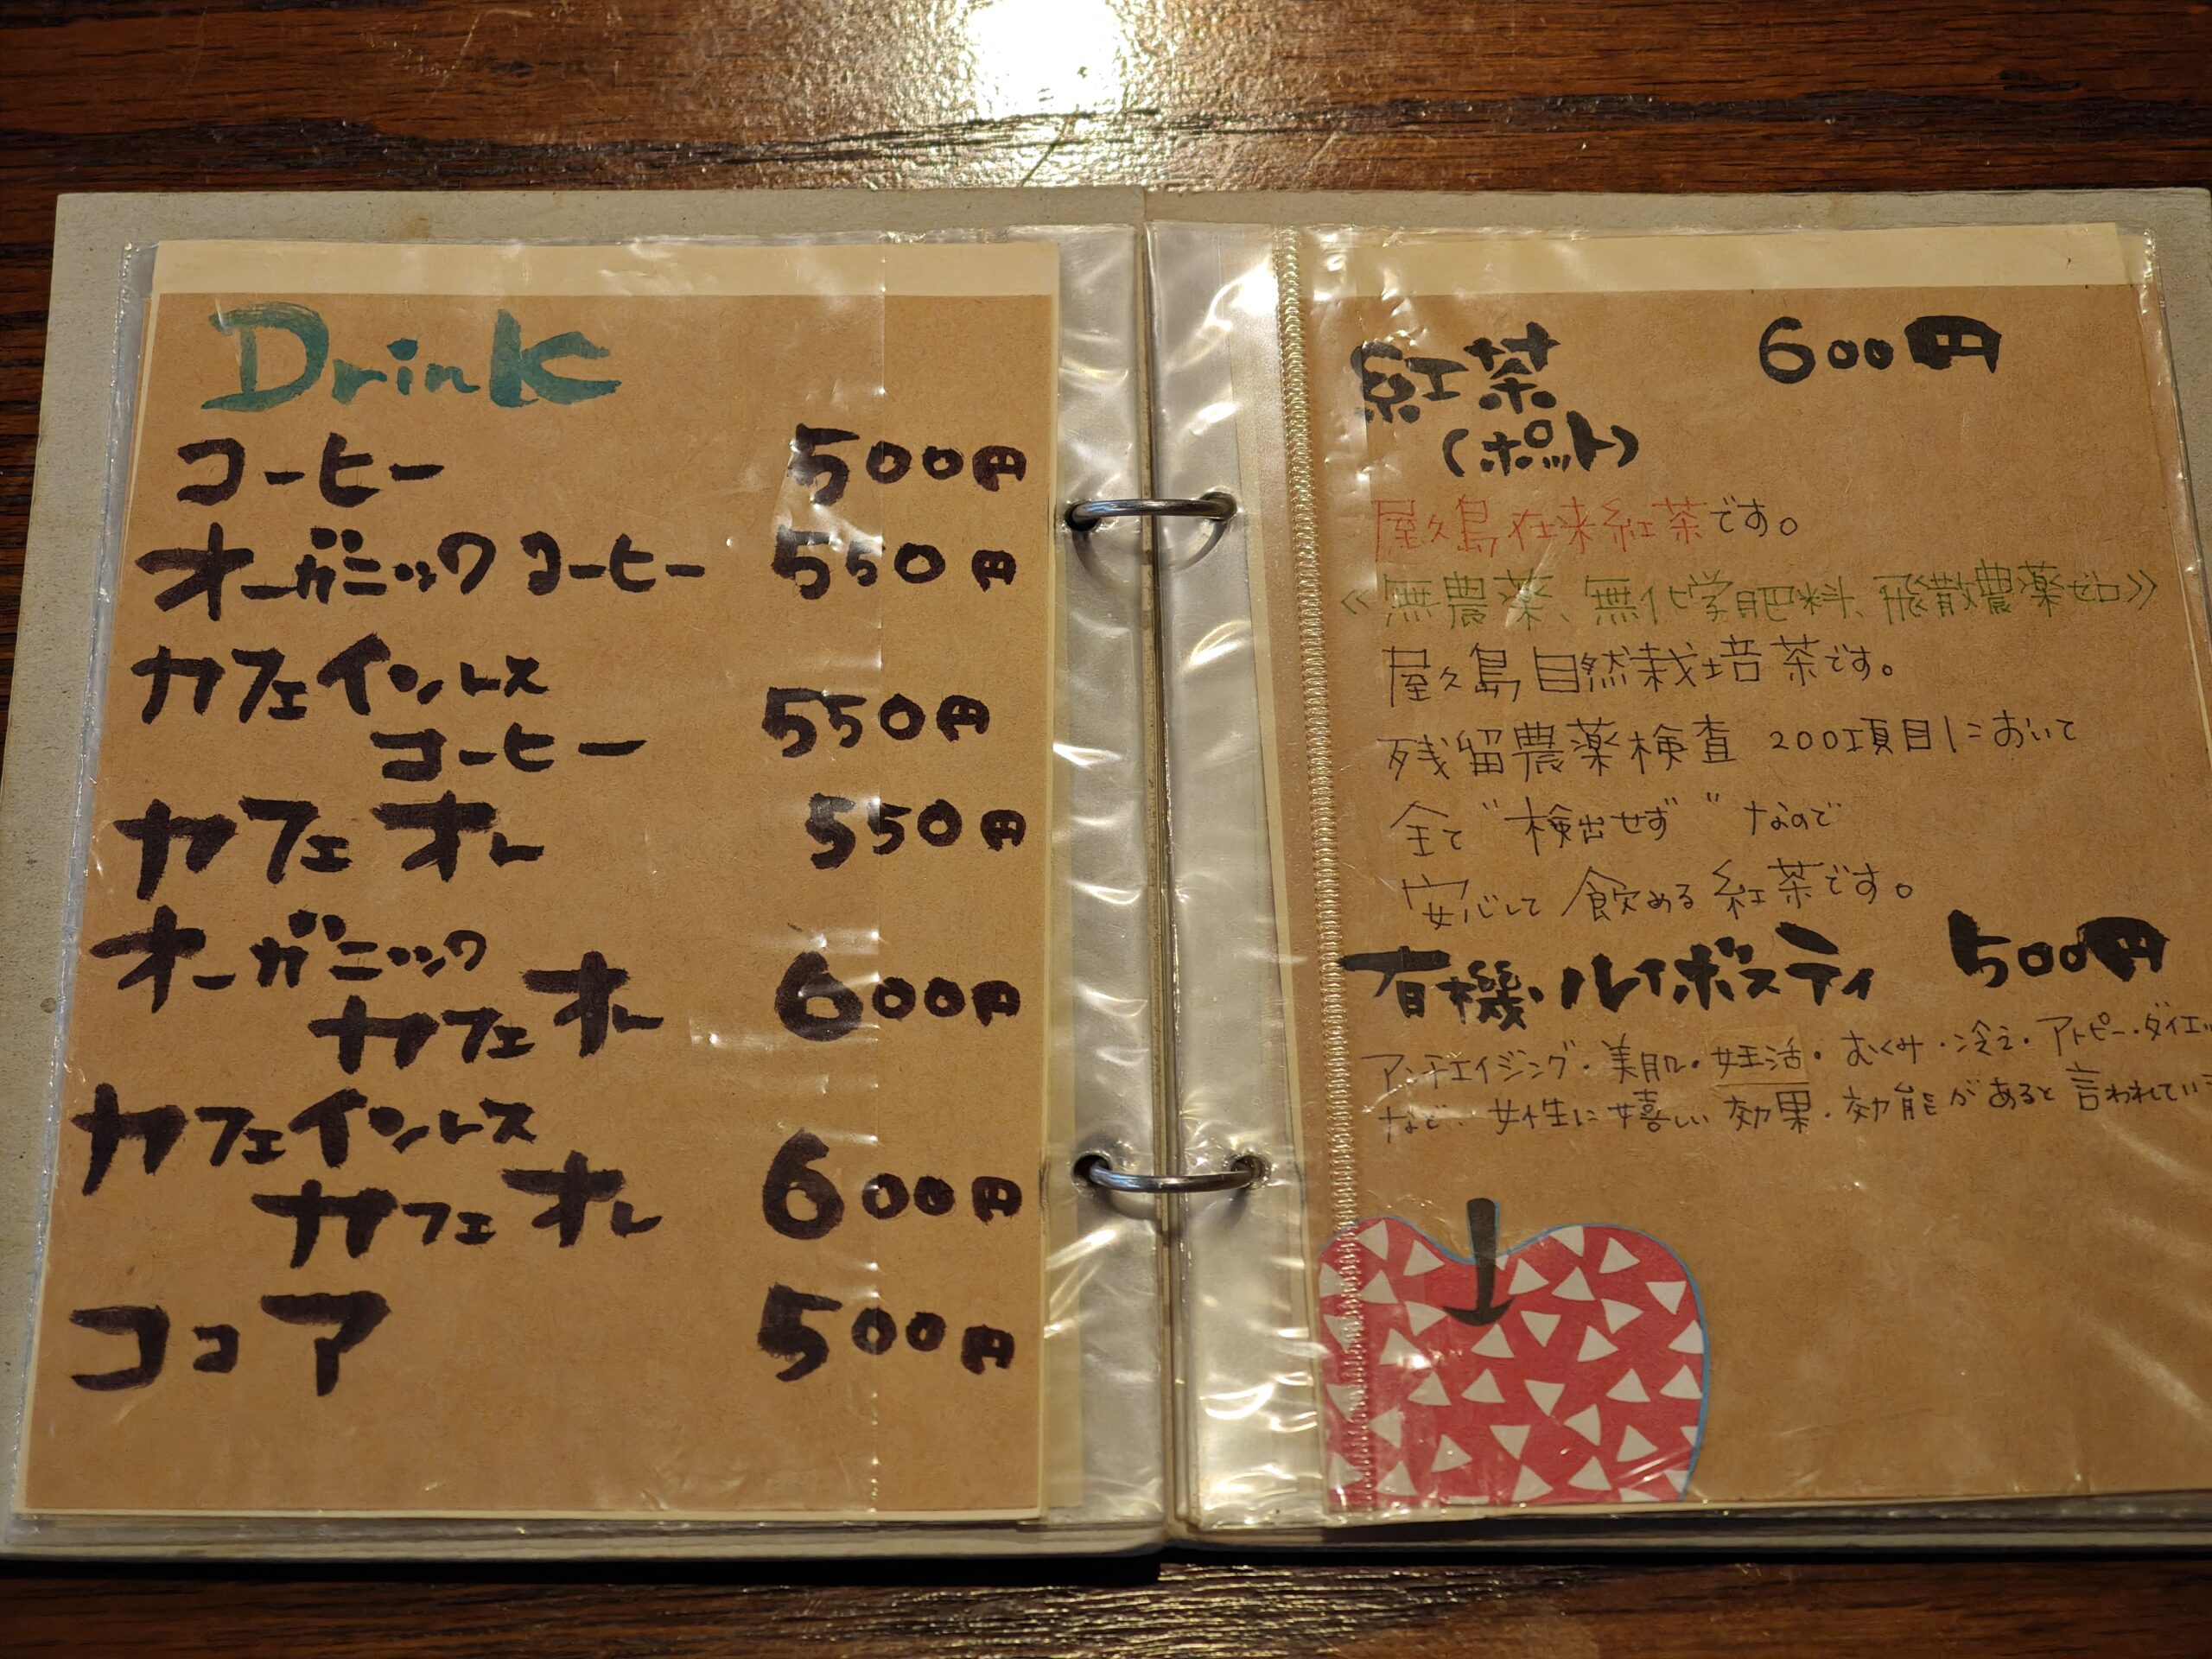 Drink
コーヒー 500円
オーガニックコーヒー 550円
カフェインレス
コーヒー 550円
カフェオレ 550円
オーガニック
カフェオレ 600円
カフェインレス
カフェオレ 600円
ココア 500円
紅茶 600円
(ポット)
屋久島在来紅茶です。
《無農薬、無化学肥料、飛散農薬ゼロ》
屋久島自然栽培茶です。
残留農薬検査 200項目において
全て"検出せず"なので
安心して飲める紅茶です。
有機・ルイボスティ 500円
アンチエイジング・美肌・妊活・むくみ・冷え・アトピー・ダイエッ
など、女性に嬉しい効果・効能があると言われてい